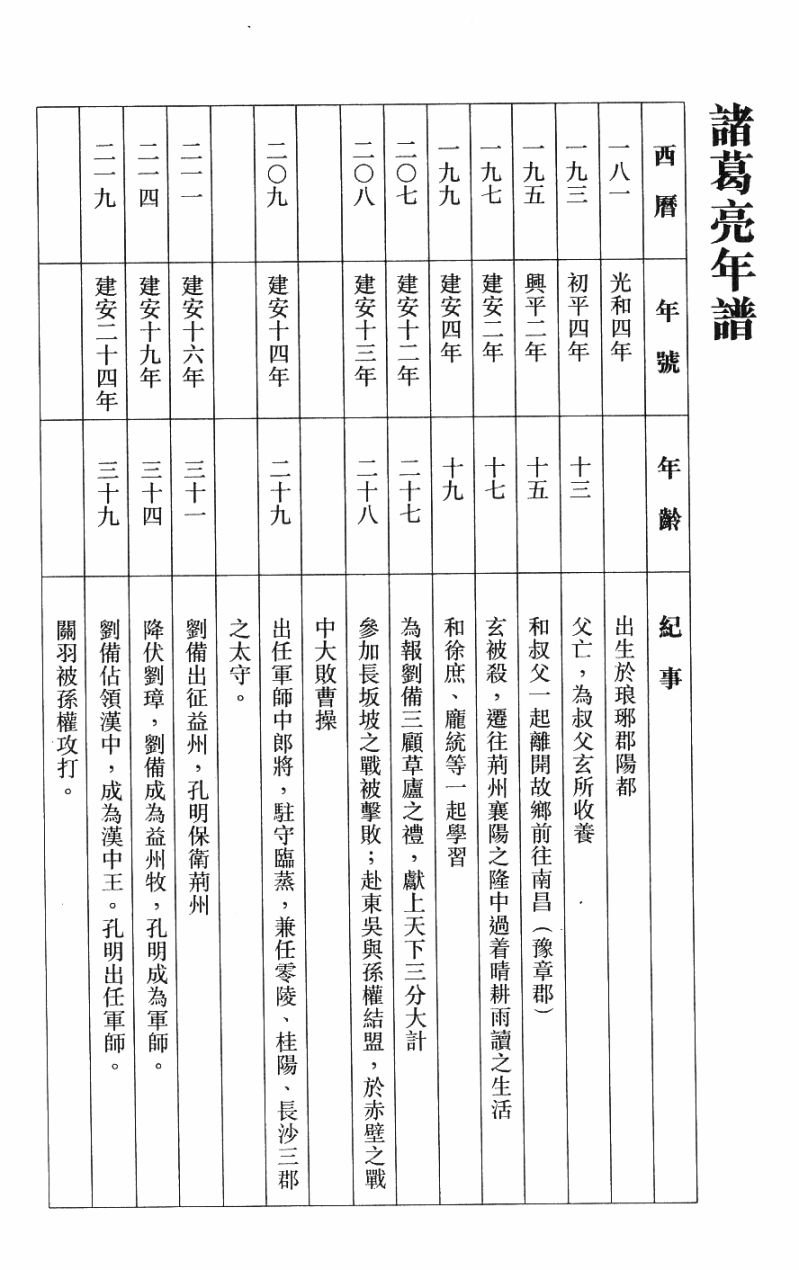 諸葛亮年譜
西曆 年號 年齡 紀事
一八一 光和四年 出生於琅琊郡陽都
一九三 初平四年 十三 父亡，為叔父玄所收養
一九五 興平二年 十五 和叔父一起離開故鄉前往南昌（豫章郡）
一九七 建安二年 十七 玄被殺，遷往荊州襄陽之隆中過着晴耕雨讀之生活
一九九 建安四年 十九 和徐庶、龐統等一起學習
二〇七 建安十二年 二十七 為報劉備三顧草廬之禮，獻上天下三分大計
二〇八 建安十三年 二十八 參加長坂坡之戰被擊敗；赴東吳與孫權結盟，於赤壁之戰
中大敗曹操
二〇九 建安十四年 二十九 出任軍師中郎將，駐守臨蒸，兼任零陵、桂陽、長沙三郡
之太守。
二一一 建安十六年 三十一 劉備出征益州，孔明保衛荊州
二一四 建安十九年 三十四 降伏劉璋，劉備成為益州牧，孔明成為軍師。
二一九 建安二十四年 三十九 劉備佔領漢中，成為漢中王。孔明出任軍師。
關羽被孫權攻打。